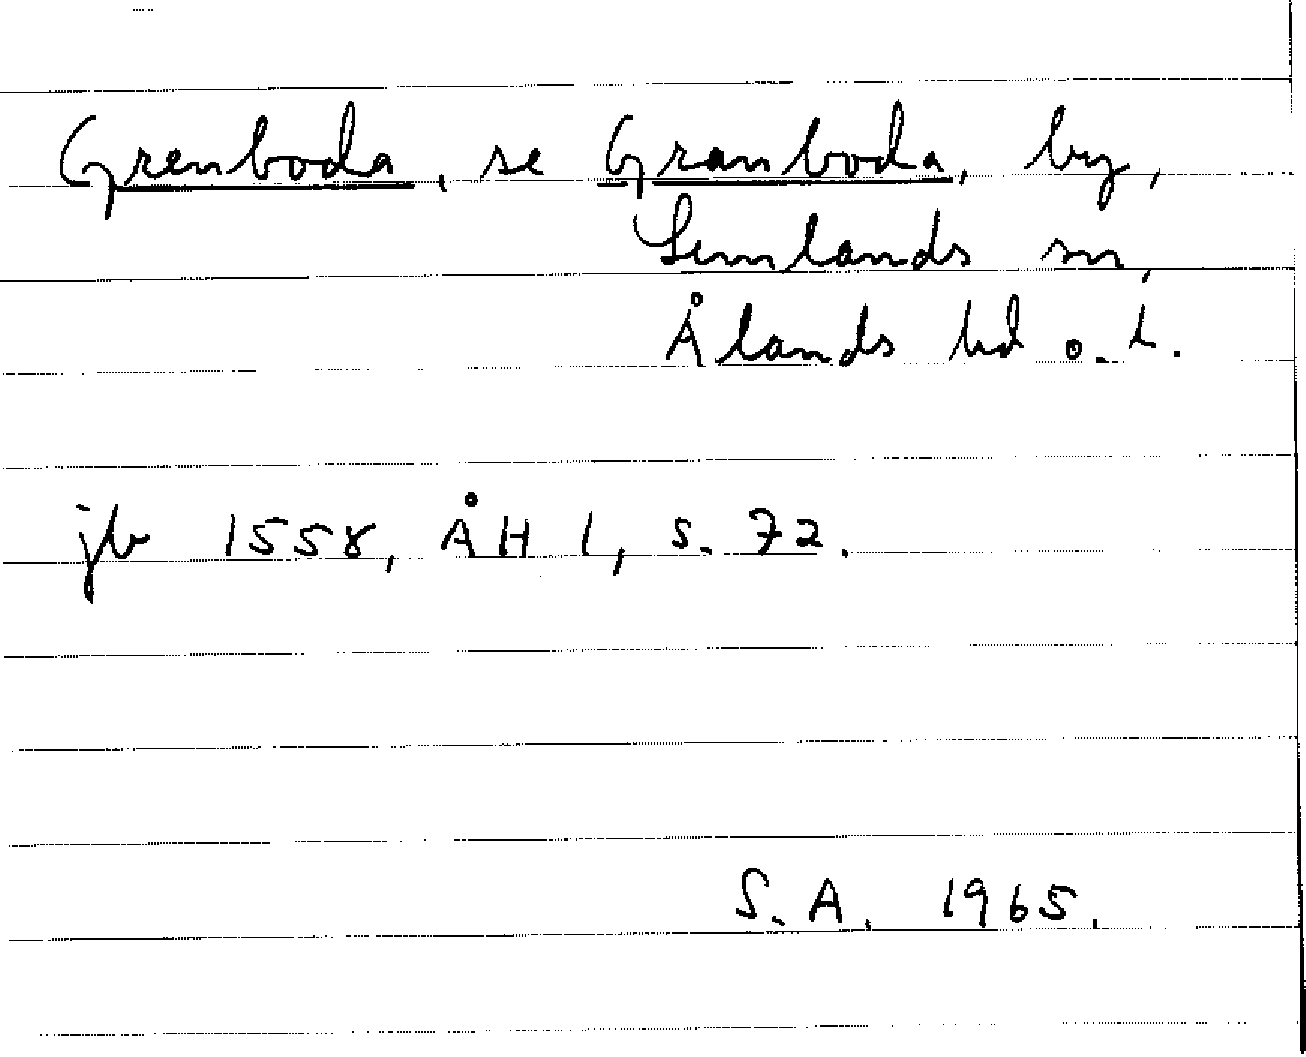 Grenboda, se Granboda, by,
Lemlands sn,
Ålands hd o. l.
jb 1558, ÅH 1, s. 72.
S. A. 1965.